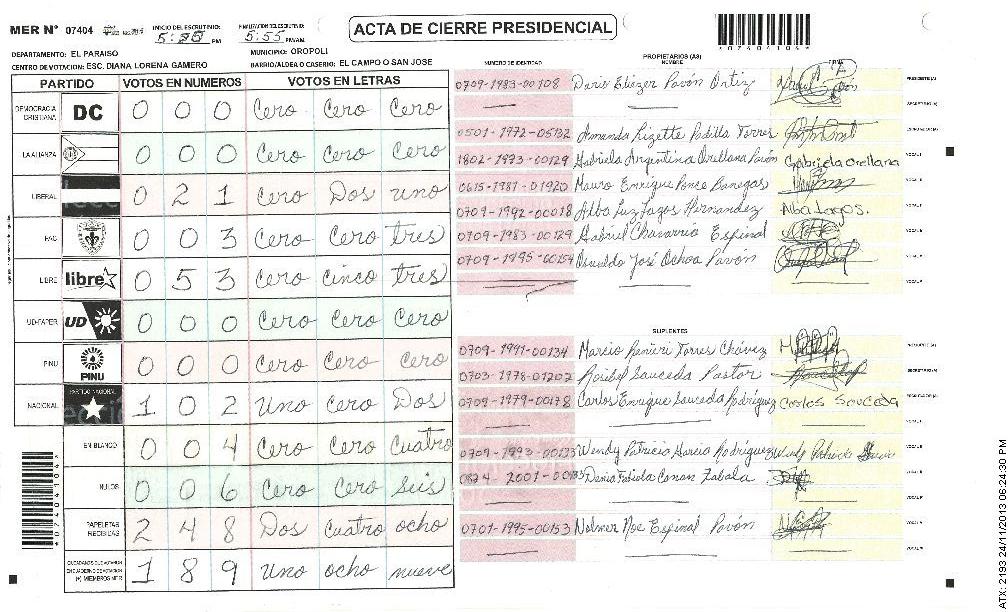 MER N° 07404
INICIO DEL ESCRUTINIO: PM
FINALIZACION DEL ESCRUTINIO: 5:55 PM/AM
ACTA DE CIERRE PRESIDENCIAL
*07404104*
DEPARTAMENTO: EL PARAISO
MUNICIPIO: OROPOLI
CENTRO DE VOTACION: ESC. DIANA LORENA GAMERO
BARRIO/ALDEA O CASERIO: EL CAMPO O SAN JOSE
PARTIDO VOTOS EN NUMEROS VOTOS EN LETRAS
DEMOCRACIA CRISTIANA DC 0 0 0 Cero Cero Cero
LA ALIANZA 0 0 0 Cero Cero Cero
LIBERAL 0 2 1 Cero Dos uno
PAC 0 0 3 Cero Cero tres
LIBRE libre 0 5 3 Cero cinco tres
UD-FAPER UD 0 0 0 Cero Cero Cero
PINU PINU 0 0 0 Cero Cero Cero
NACIONAL PARTIDO NACIONAL 1 0 2 Uno Cero Dos
EN BLANCO 0 0 4 Cero Cero Cuatro
NULOS 0 0 6 Cero Cero seis
PAPELETAS RECIBIDAS 2 4 8 Dos Cuatro ocho
CIUDADANOS QUE VOTARON EN CUADERNO DE VOTACION (+) MIEMBROS MER 1 8 9 Uno ocho nueve
*07404104*
PROPIETARIOS (AS)
NUMERO DE IDENTIDAD NOMBRE FIRMA
0709-1983-00108 Dario Eliezer Pavón Ortiz PRESIDENTE (A)
SECRETARIO (A)
0501-1972-05132 Amanda Lizette Padilla Torres ESCRUTADOR (A)
1802-1973-00129 Gabriela Argentina Orellana Pavón Gabriela Orellana VOCAL I
0615-1981-01920 Mauro Enrique Ponce Banegas VOCAL II
0709-1992-00018 Alba Luz Lagos Hernandez Alba Lagos.
0709-1983-00129 Gabriel Chavarria Espinal
0709-1995-00154 Oswaldo José Ochoa Pavón
SUPLENTES
0709-1991-00134 Marcio Renieri Torres Chávez PRESIDENTE (A)
0703-1978-01202 Rosibel Sauceda Pastor SECRETARIO (A)
0709-1979-00178 Carlos Enrique Sauceda Rodríguez Carlos Sauceda ESCRUTADOR (A)
0709-1993-00123 Wendy Patricia Garcia Rodríguez
Zabala
0701-1995-00153 Nelmer Noe Espinal Pavón
ATX: 2193 24/11/2013 06:24:30 PM